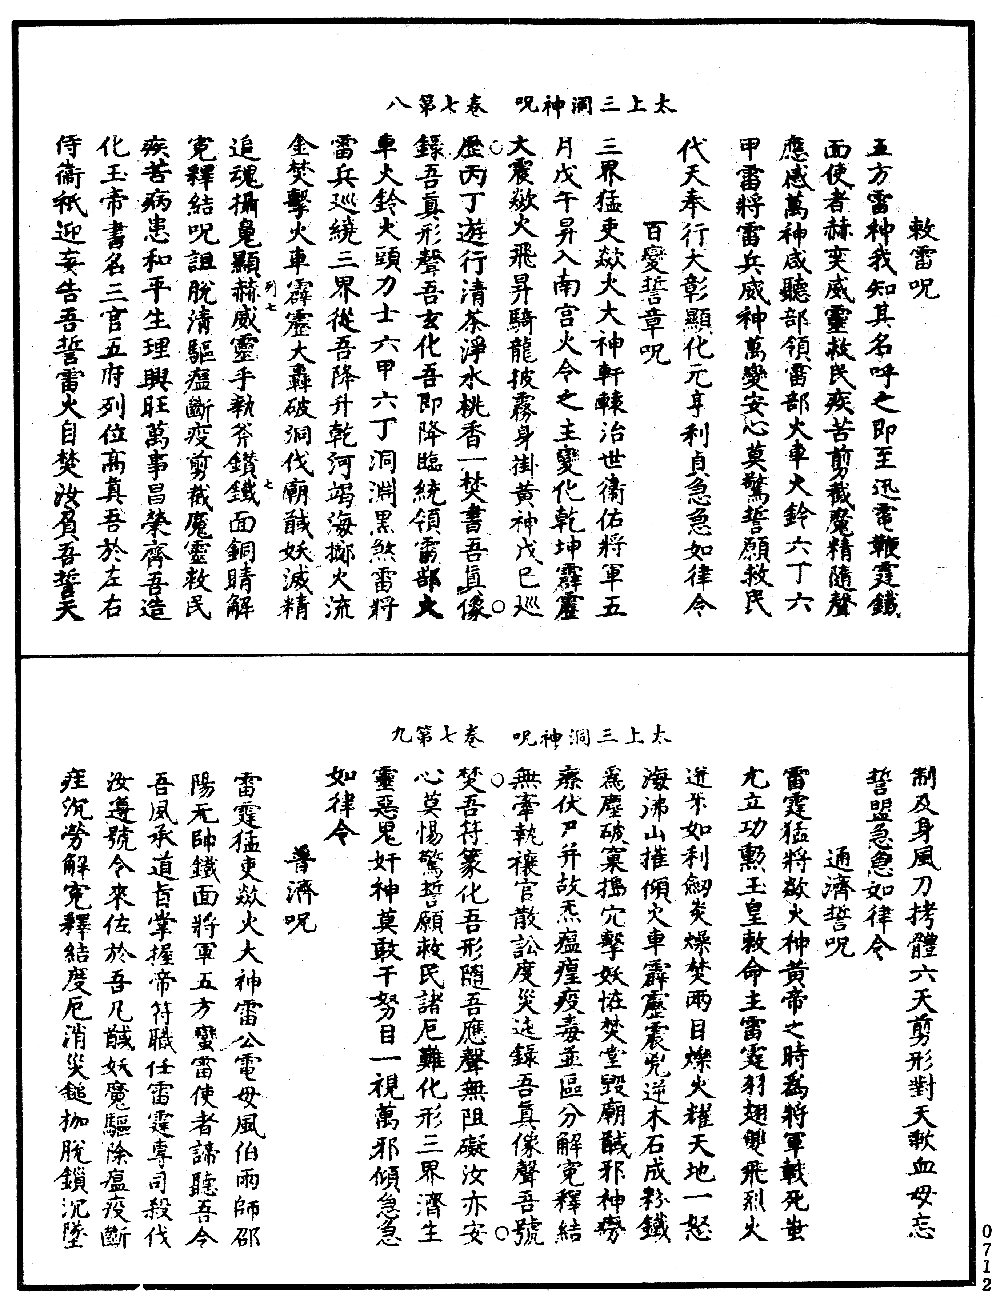 太上三洞神呪　卷七第八
敕雷呪
五方雷神我知其名呼之即至迅電鞭霆鐵
面使者赫奕威靈救民疾苦剪截魔精隨聲
應感萬神咸聽部領雷部火車火鈴六丁六
甲雷將雷兵威神萬變安心莫驚誓願救民
代天奉行大彰顯化元亨利貞急急如律令
百變誓章呪
三界猛吏欻火大神軒轅治世衞佑將軍五
月戊午昇入南宫火令之主變化乾坤霹靂
大震欻火飛昇騎龍披霧身掛黄神戊巳巡
歷丙丁遊行清茶淨水桃香一焚書吾真像
錄吾真形聲吾玄化吾即降臨統領雷部火
車火鈴火頭刀士六甲六丁洞淵黑煞雷將
雷兵巡繞三界從吾降升乾河竭海擲火流
金焚擊火車霹靂大轟破洞伐廟馘妖滅精
追魂攝鬼顯赫威靈手執斧鑽鐵面銅睛解
寃釋結呪詛脫清驅瘟斷疫剪截魔靈救民
疾苦病患和平生理興旺萬事昌榮齊吾造
化玉帝書名三官五府列位高真吾於左右
侍衞祇迎妄告吾誓雷火自焚汝負吾誓天
列七
七
太上三洞神呪　卷七第九
制及身風刀拷體六天剪形對天歃血毋忘
誓盟急急如律令
通濟誓呪
雷霆猛將欻火神黄帝之時爲將軍戰死蚩
尤立功勲玉皇敕命主雷霆羽翅雙飛烈火
迸牙如利劒炎燥焚兩目爍火耀天地一怒
海沸山摧傾火車霹靂震兇逆木石成粉鐵
爲塵破窠搗穴擊妖怪焚堂毀廟馘邪神癆
瘵伏尸并故炁瘟瘟疫毒並區分解寃釋結
無牽執禳官散訟度災迍錄吾真像聲吾號
焚吾符篆化吾形隨吾應聲無阻礙汝亦安
心莫惕驚誓願救民諸厄難化形三界濟生
靈惡鬼奸神莫敢干努目一視萬邪傾急急
如律令
普濟呪
雷霆猛吏欻火大神雷公電母風伯雨師邵
陽元帥鐵面將軍五方蠻雷使者諦聽吾令
吾風承道旨掌握帝符職任雷霆專司殺伐
汝遵號令來佐於吾凡馘妖魔驅除瘟疫斷
疰沉癆解寃釋結度厄消災鎚枷脫鎖沉墜
0712